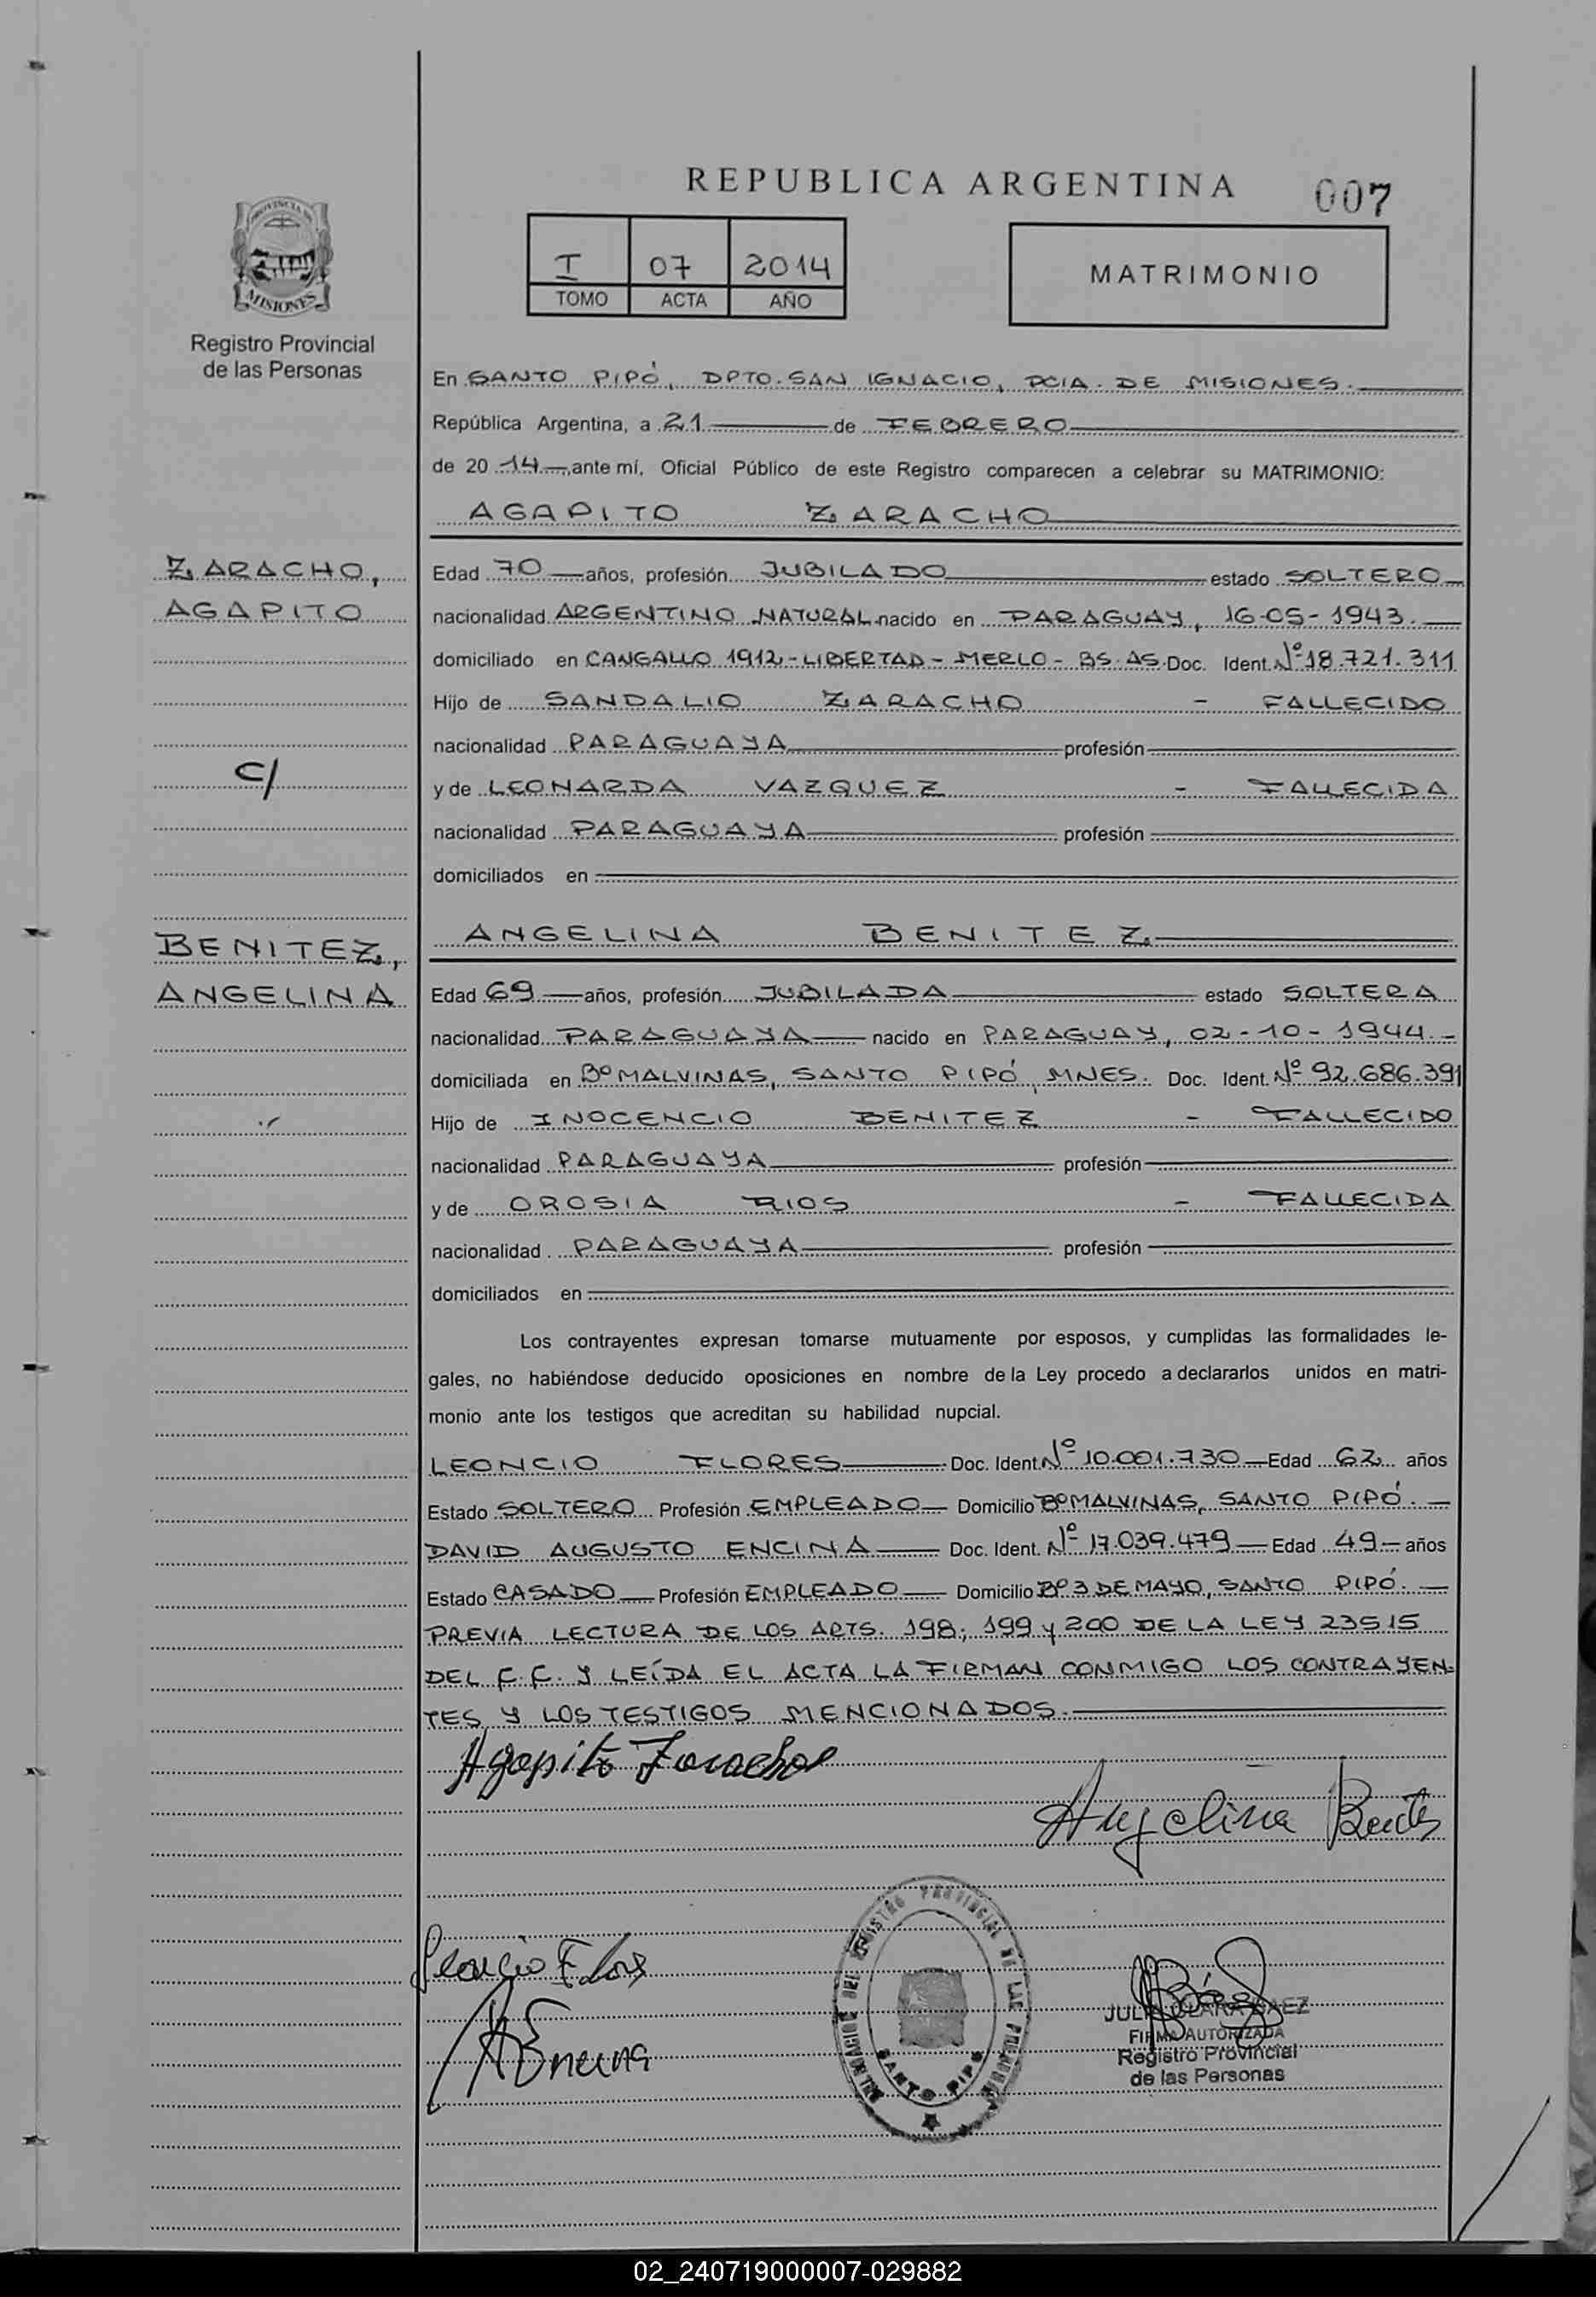 REPUBLICA ARGENTINA
007
PROVINCIA DE
MISIONES
Registro Provincial
de las Personas
I 07 2014
TOMO ACTA AÑO
MATRIMONIO
En SANTO PIPÓ, DPTO. SAN IGNACIO, PCIA. DE MISIONES.
República Argentina, a 21 de FEBRERO
de 20 14, ante mí, Oficial Público de este Registro comparecen a celebrar su MATRIMONIO:
AGAPITO ZARACHO
ZARACHO,
AGAPITO
C/
BENITEZ,
ANGELINA
Edad 70 años, profesión JUBILADO estado SOLTERO
nacionalidad ARGENTINO NATURAL nacido en PARAGUAY, 16-05-1943.
domiciliado en CANGALLO 1912-LIBERTAD-MERLO-BS.AS. Doc. Ident. Nº 18.721.311
Hijo de SANDALIO ZARACHO - FALLECIDO
nacionalidad PARAGUAYA profesión
y de LEONARDA VAZQUEZ - FALLECIDA
nacionalidad PARAGUAYA profesión
domiciliados en
ANGELINA BENITEZ
Edad 69 años, profesión JUBILADA estado SOLTERA
nacionalidad PARAGUAYA nacido en PARAGUAY, 02-10-1944.-
domiciliada en Bº MALVINAS, SANTO PIPÓ, MNES. Doc. Ident. Nº 92.686.391
Hijo de INOCENCIO BENITEZ - FALLECIDO
nacionalidad PARAGUAYA profesión
y de OROSIA RIOS - FALLECIDA
nacionalidad PARAGUAYA profesión
domiciliados en
Los contrayentes expresan tomarse mutuamente por esposos, y cumplidas las formalidades le-
gales, no habiéndose deducido oposiciones en nombre de la Ley procedo a declararlos unidos en matri-
monio ante los testigos que acreditan su habilidad nupcial.
LEONCIO FLORES Doc. Ident. Nº 10.001.730 Edad 62 años
Estado SOLTERO Profesión EMPLEADO Domicilio Bº MALVINAS, SANTO PIPÓ.
DAVID AUGUSTO ENCINA Doc. Ident. Nº 17.039.479 Edad 49 años
Estado CASADO Profesión EMPLEADO Domicilio Bº 3 DE MAYO, SANTO PIPÓ.
PREVIA LECTURA DE LOS ARTS. 198; 199 y 200 DE LA LEY 23515
DEL C.C. Y LEÍDA EL ACTA LA FIRMAN CONMIGO LOS CONTRAYEN-
TES Y LOS TESTIGOS MENCIONADOS.
Agapito Zaracho
Angelina Benitez
Leoncio Flores
Encina
REGISTRO PROVINCIAL DE LAS PERSONAS
SANTO PIPO
JULIA CLARA BAEZ
FIRMA AUTORIZADA
Registro Provincial
de las Personas
02_240719000007-029882